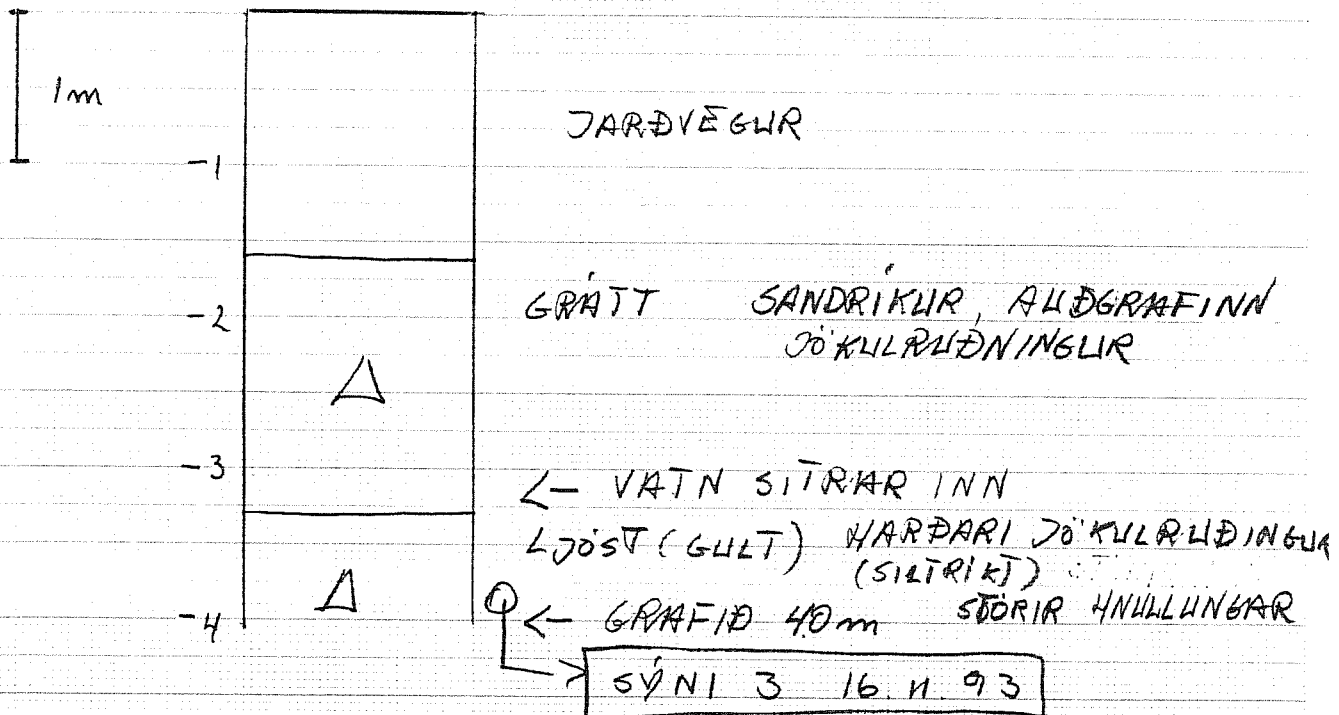 1m
JARÐVEGUR
-1
GRÁTT SANDRÍKUR, AUÐGRAFINN
-2
JÖKULRUÐNINGUR
-3
<- VATN SITRAR INN
LJÓST (GULT) HARÐARI JÖKULRUÐINGUR
(SILTRÍKT)
STÓRIR HNULLUNGAR
-4
<- GRAFIÐ 4.0m
SÝNI 3 16.11.93